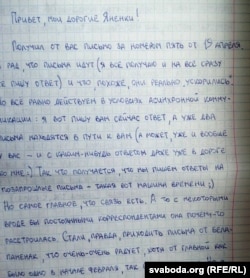 Привет, мои дорогие Яненки!
Получил от вас письмо за номером пять от 15 апреля.
Я рад, что письма идут (я все получаю и на все сразу
же пишу ответ) и что, похоже, они реально ускорились.
Но все равно действуем в условиях асинхронной комму-
никации: я вот пишу вам сейчас ответ, а уже два
письма находятся в пути к вам (а может, уже и вообще
у вас – и с каким-нибудь ответом даже уже в дороге
ко мне.) Так что получается, что мы пишем ответы на
позапрошлые письма – такая вот машина времени ;)
Но самое главное, что связь есть. А то с некоторыми
вроде бы постоянными корреспондентами она почему-то
расстроилась. Стали, правда, приходить письма от Бела-
панечак, что очень-очень радует, хотя от главной как
было одно в начале февраля, так
svaboda.org (RFE/RL)